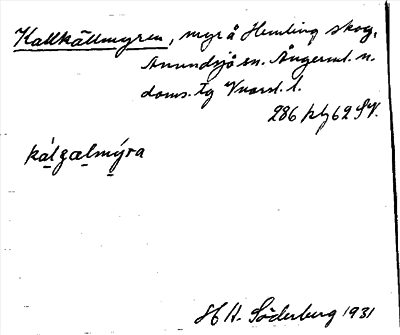 Kallkällmyren, myr å Hemling skog,
Anundsjö sn. Ångerml. n.
doms. tg Vnorrl. l.
286 62 SV.
kálgælmýra
H A. Söderberg 1931